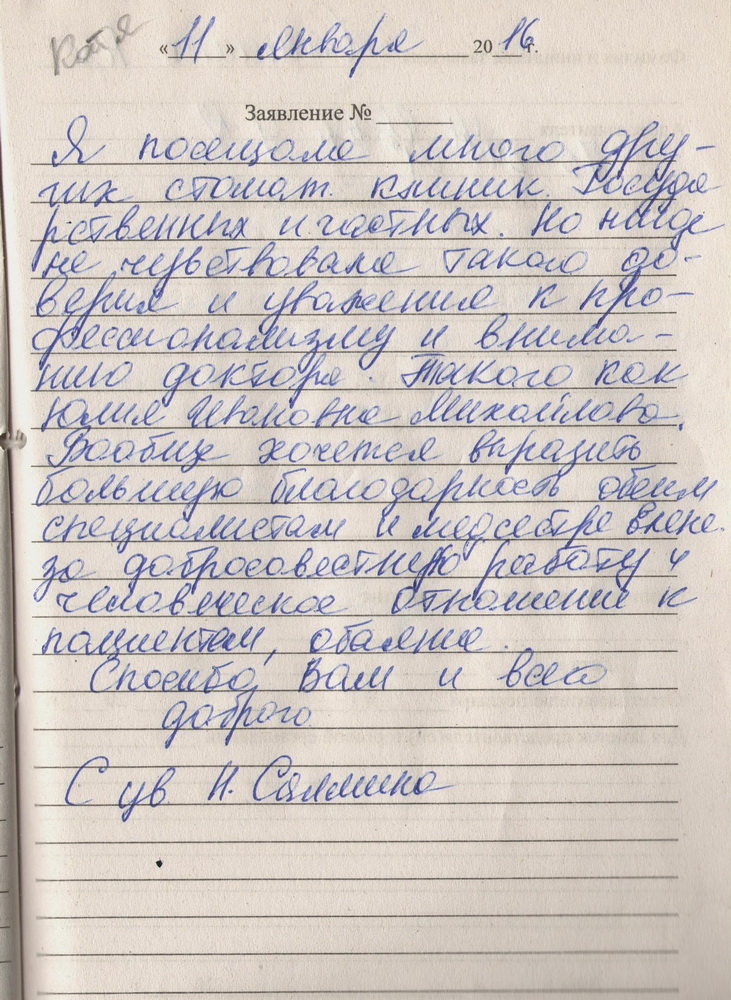 Катя
«11» января 2016г.
Заявление №
Я посещала много дру-
гих стомат. клиник. Госуда
рственных и частных. Но нигде
не чувствовала такого до-
верия и уважения к про-
фессионализму и внима-
нию доктора. Такого как
Юлия Ивановна Михайлова.
Вообще хочется выразить
большую благодарность обеим
специалистам и медсестре Елене.
за добросовестную работу и
человеческое отношение к
пациентам, обаяние.
Спасибо Вам и всего
доброго
С ув. Н. Салмина